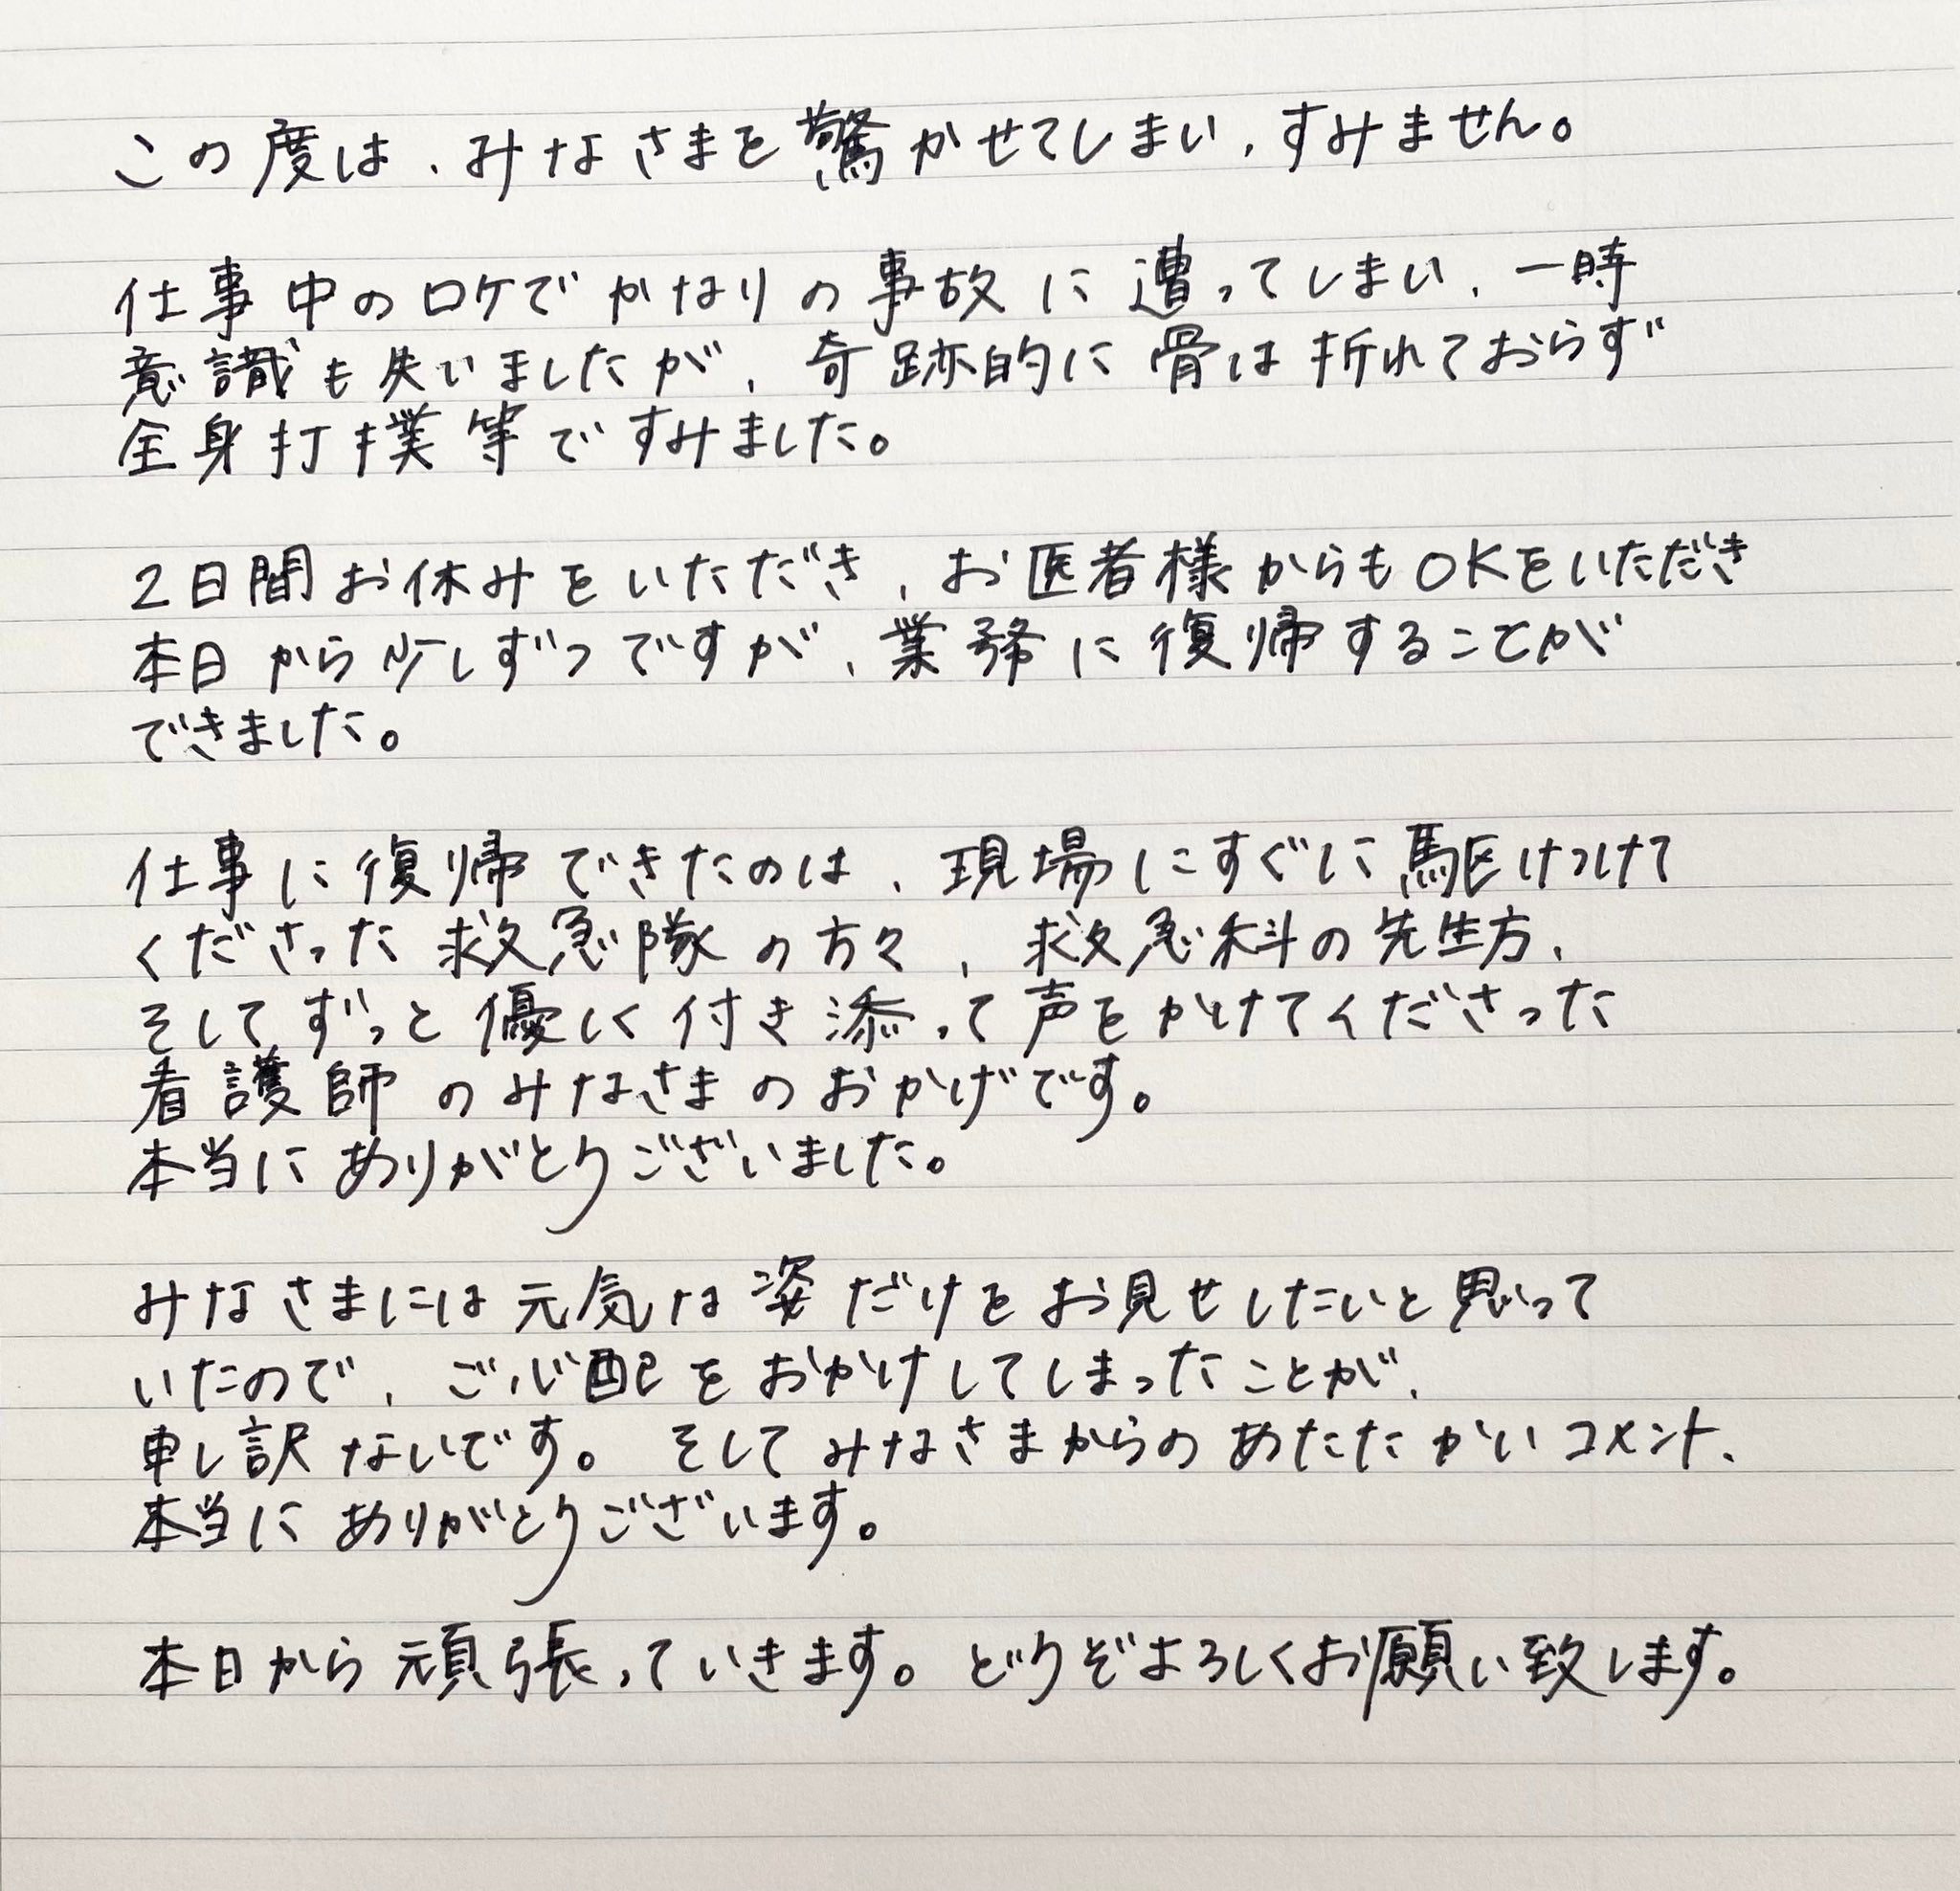 この度は、みなさまを驚かせてしまい、すみません。
仕事中のロケでかなりの事故に遭ってしまい、一時
意識も失いましたが、奇跡的に骨は折れておらず
全身打撲等ですみました。
2日間お休みをいただき、お医者様からもOKをいただき
本日から少しずつですが、業務に復帰することが
できました。
仕事に復帰できたのは、現場にすぐに駆けつけて
くださった救急隊の方々、救急科の先生方、
そしてずっと優しく付き添って声をかけてくださった
看護師のみなさまのおかげです。
本当にありがとうございました。
みなさまには元気な姿だけをお見せしたいと思って
いたので、ご心配をおかけしてしまったことが、
申し訳ないです。そしてみなさまからのあたたかいコメント、
本当にありがとうございます。
本日から頑張っていきます。どうぞよろしくお願い致します。